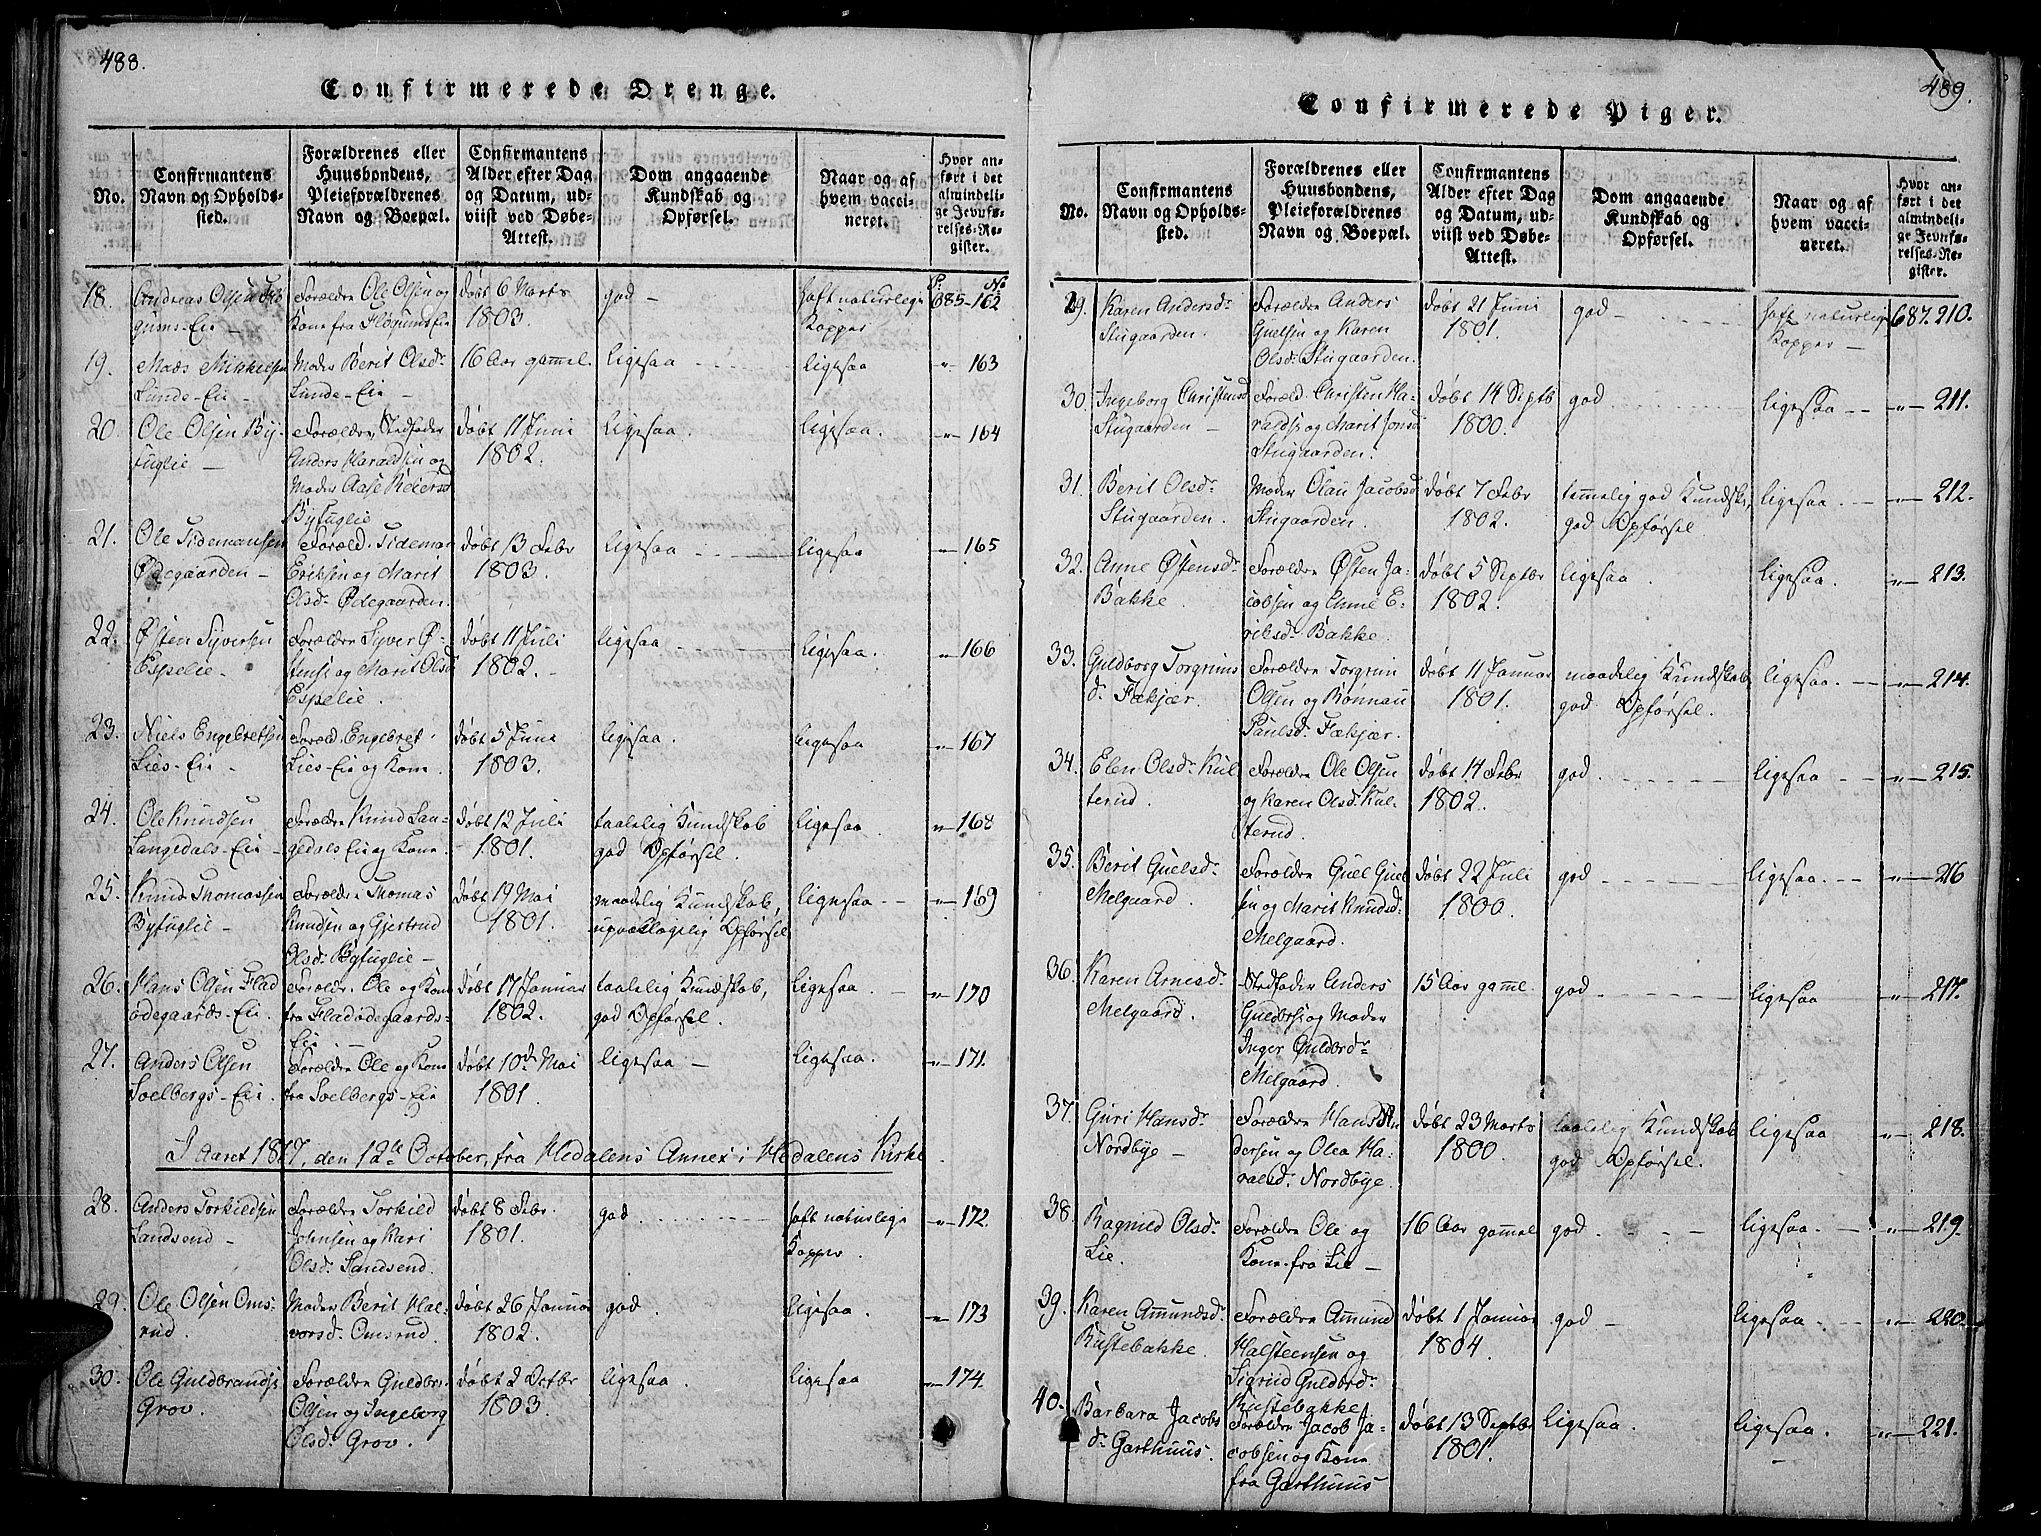 488.
Confirmerede Drenge.
No.
Confirmantens
Navn og Opholds-
sted.
Forældrenes eller
Huusbondens,
Pleieforældrenes
Navn og Boepæl.
Confirmantens
Alder efter Dag
og Datum, ud-
viist ved Døbe-
Attest.
Dom angaaende
Kundskab og
Opførsel.
Naar og af
hvem vacci-
neret.
Hvor an-
ført i det
almindeli-
ge Jevnfø-
relses-Re-
gister.
18.
Andreas Olsen
Eie
Forældre Ole Olsen og
Kone fra
døbt 6 Marts
1803.
god
haft naturlige
Kopper
P. No
685-162
19.
Mads Mikkelsen
Lunde-Eie
Moder Berit Olsdr
Lunde-Eie
16 Aar gammel
ligesaa
ligesaa
" 163
20.
Ole Olsen By-
fuglie
Forældre, Stedfader
Anders Haraldsen og
Moder Aase Reiersd
Byfuglie
døbt 11 Juni
1802.
ligesaa.
ligesaa.
" 164
21.
Ole Tidemansen
Ødegaarden
Foræld. Tideman
Eriksen og Marit
Olsdr Ødegaarden.
døbt 13 Febr
1803.
ligesaa
ligesaa
" 165
22.
Østen Syversen
Espelie
Forældre Syver Ø-
stens. og Marit Olsd
Espelie.
døbt 11 Juli
1802.
ligesaa
ligesaa.
" 166
23.
Niels Engebretsen
Lies-Eie
Foræld. Engebret
Lies-Eie og Kone.
døbt 5 Juni
1803.
ligesaa.
ligesaa
" 167
24.
Ole Knudsen
Langedals-Eie
Forældre Knud Lan-
gedals Eie og Kone
døbt 12 Juli
1801.
taalelig Kundskab
god Opførsel.
ligesaa
" 168
25.
Knud Thomassen
Byfuglie
Forældre Thomas
Knudsen og Gjertrud
Olsdr Byfuglie
døbt 19 Mai
1801.
maadelig Kundskab,
upaaklagelig Opførsel
ligesaa
" 169
26.
Hans Olsen Flad
ødegaards-Eie.
Forældre Ole og Kone
fra Fladødegaards-
Eie.
døbt 17 Januar
1802.
taalelig Kundskab,
god Opførsel.
ligesaa.
" 170
27.
Anders Olsen
Soelbergs-Eie.
Forældre Ole og Kone
fra Soelbergs-Eie
døbt 10de Mai
1801.
ligesaa
ligesaa.
" 171.
I Aaret 1817, den 12te October, fra Hedalens Annex i Hedalens Kirke
28.
Anders Torkildsen
Sandsend
Forældre Torkild
Johnsen og Kari
Olsdr Sandsend.
døbt 8 Febr.
1801.
god.
haft naturlige
Kopper.
" 172.
29.
Ole Olsen Oms-
rud.
Moder Berit Hal-
vorsdr Omsrud.
døbt 26 Januar
1802.
god.
ligesaa.
" 173
30.
Ole Guldbrands.
Grov.
Forældre Guldbr.
Olsen og Ingeborg
Olsdr Grov.
døbt 2 Octbr
1803.
ligesaa.
ligesaa
" 174.
489.
Confirmerede Piger.
No.
Confirmantens
Navn og Opholds-
sted.
Forældrenes eller
Huusbondens,
Pleieforældrenes
Navn og Boepæl.
Confirmantens
Alder efter Dag
og Datum, ud-
viist ved Døbe-
Attest.
Dom angaaende
Kundskab og
Opførsel.
Naar og af
hvem vacci-
neret.
Hvor an-
ført i det
almindeli-
ge Jevnfø-
relses-Re-
gister.
29.
Karen Andersdr
Stugaarden.
Forældre Anders
Guelsen og Karen
Olsdr Stugaarden.
døbt 21 Juni
1801.
god
haft naturlige
Kopper
687. 210.
30.
Ingeborg Christensd
Stugaarden
Foræld. Christen Ha-
ralds. og Marit Jonsd
Stugaarden.
døbt 14 Septb
1800.
god
ligesaa
" 211.
31.
Berit Olsdr
Stugaarden.
Moder Olau Jacobsd
Stugaarden.
døbt 7 Febr
1802.
temmelig god Kundsk.,
god Opførsel
ligesaa
" 212.
32.
Anne Østensdr
Bakke.
Forældre Østen Ja-
cobsen og Anne E-
riksdr Bakke.
døbt 5 Septbr
1802.
ligesaa.
ligesaa.
" 213.
33.
Guldborg Torgrims
dr Fækjær.
Forældre Torgrim
Olsen og Rønnau
Paulsdr Fækjær.
døbt 11 Januar
1801.
maadelig Kundskab
god Opførsel.
ligesaa.
" 214.
34.
Elen Olsdr Kul
terud.
Forældre Ole Olsen
og Karen Olsdr Kul-
terud.
døbt 14 Febr
1802.
god
ligesaa
" 215.
35.
Berit Guelsdr
Melgaard.
Forældre Guel Guel
sen og Marit Knudsdr
Melgaard.
døbt 22 Juli
1800.
god
ligesaa.
" 216
36.
Karen Arnesdr
Melgaard.
Stedfader Anders
Guldbrs. og Moder
Inger Guldbrdr
Melgaard.
15 Aar gaml.
god
ligesaa
" 217.
37.
Guri Hansdr
Nordbye
Forældre Hans An
dersen og Olea Ha-
raldsdr Nordbye.
døbt 23 Marts
1800.
taalelig Kundskab
god Opførsel.
ligesaa
" 218.
38.
Ragnild Olsdr
Lie.
Forældre Ole og
Kone fra Lie
16 Aar gammel
god.
ligesaa.
" 219.
39.
Karen Amundsdr
Rustebakke.
Forældre Amund
Halsteensen og
Sigrid Guldbrdr
Rustebakke
døbt 1 Januar
1804.
god
ligesaa.
" 220.
40.
Barbara Jacobs
dr Garthuus.
Forældre Jacob Ja-
cobsen og Kone
fra Garthuus
døbt 13 Septbr
1801.
ligesaa.
ligesaa.
" 221.